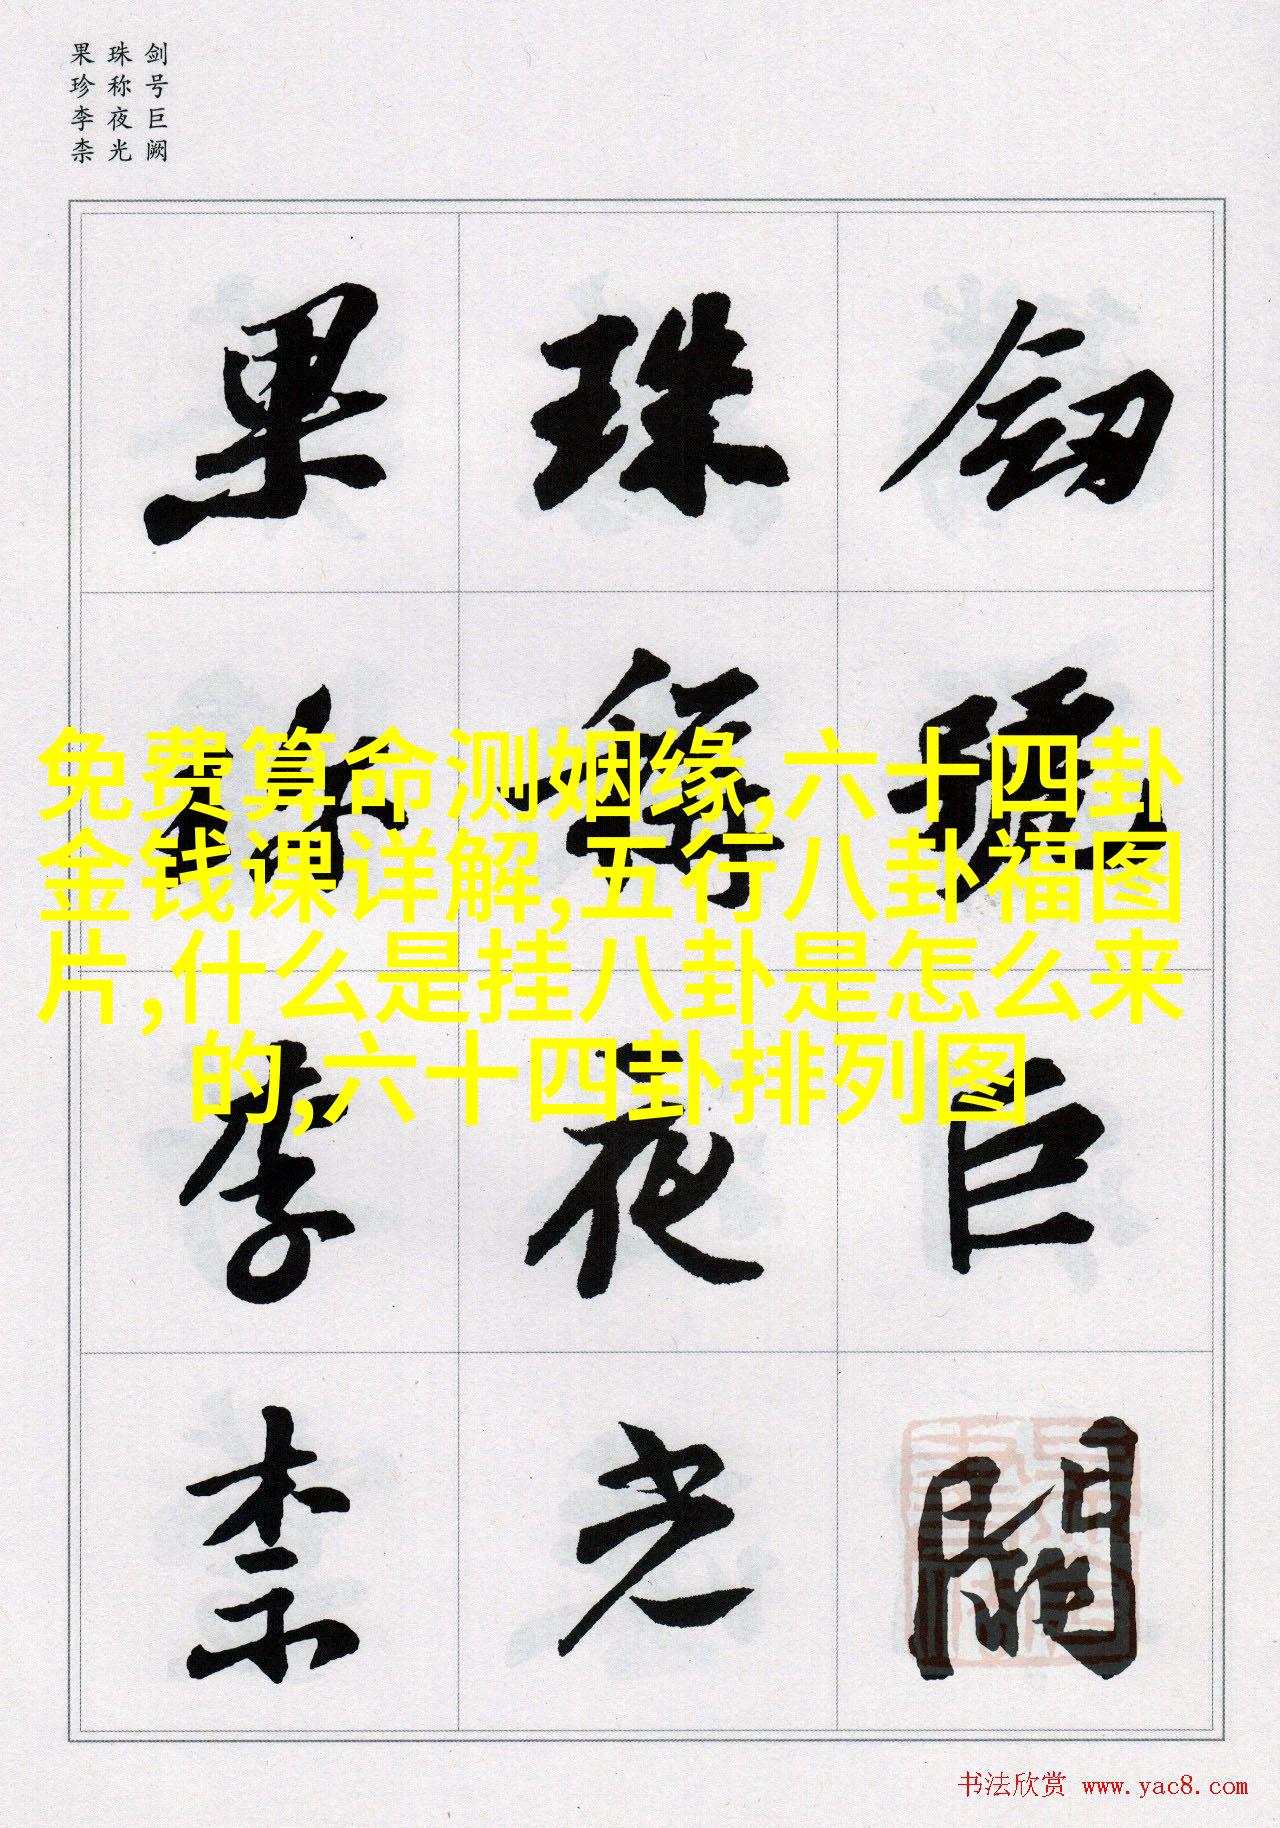 剑号巨阙
珠称夜光
果珍李柰
劒號巨闕
珠稱夜光
果珍李柰
免费算命测姻缘,六十四卦
金钱课详解,五行八卦福图
片,什么是挂八卦是怎么来
的,六十四卦排列图
书法欣赏 www.yac8.com